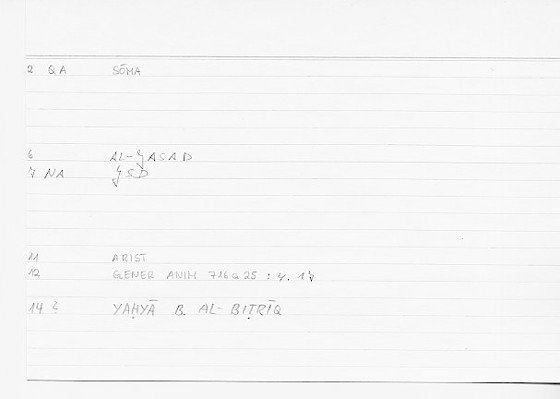 2 QA SŌMA
6 AL-JASAD
7 NA JSD
11 ARIST
12 GENER ANIM 716a25 : 4.17
14 YAḤYĀ B. AL-BIṬRĪQ